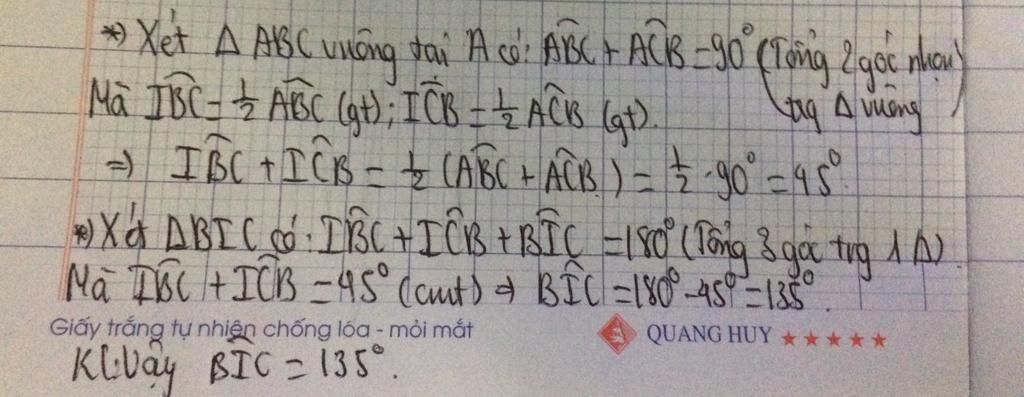 *) Xét Δ ABC vuông tại A có: ABĈ + AĈB = 90° (Tổng 2 góc nhọn
trg Δ vuông)
Mà IB̂C = 1/2 AB̂C (gt); IĈB = 1/2 AĈB (gt).
=> IB̂C + IĈB = 1/2 (AB̂C + AĈB) = 1/2 · 90° = 45°.
*) Xét ΔBIC có: IB̂C + IĈB + BÎC = 180° (Tổng 3 góc trg 1 Δ).
Mà IB̂C + IĈB = 45° (cmt) => BÎC = 180° - 45° = 135°.
Giấy trắng tự nhiên chống lóa - mỏi mắt
QUANG HUY ★★★★★
KL: Vậy BÎC = 135°.